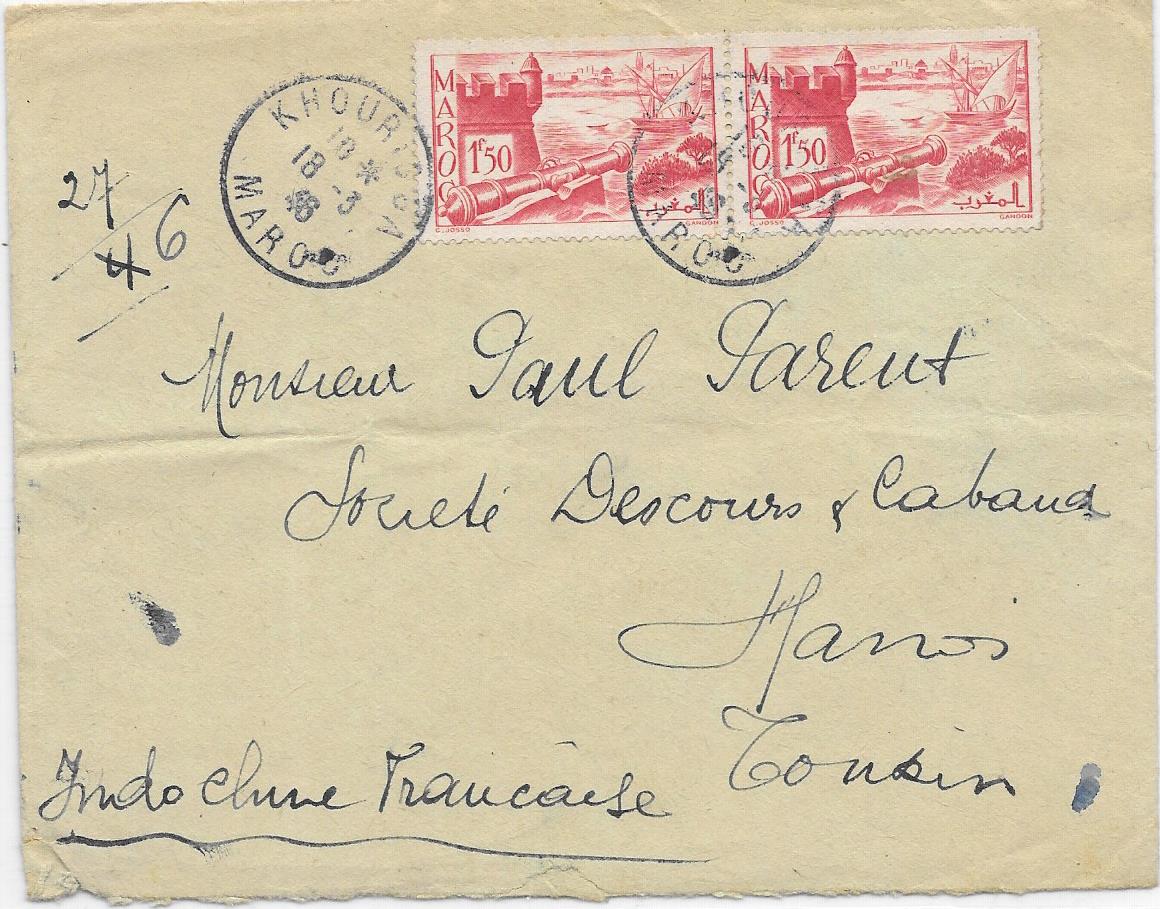 KHOURIBGA
18 *
18 -3
46
MAROC
MAROC
1F50
المغرب
C. JOSSO
GANDON
MAROC
1F50
المغرب
C. JOSSO
GANDON
MAROC
27/4 6
Monsieur Paul Parent
Societé Descours & Cabaud
Hanoi
Tonkin
Indochine Francaise